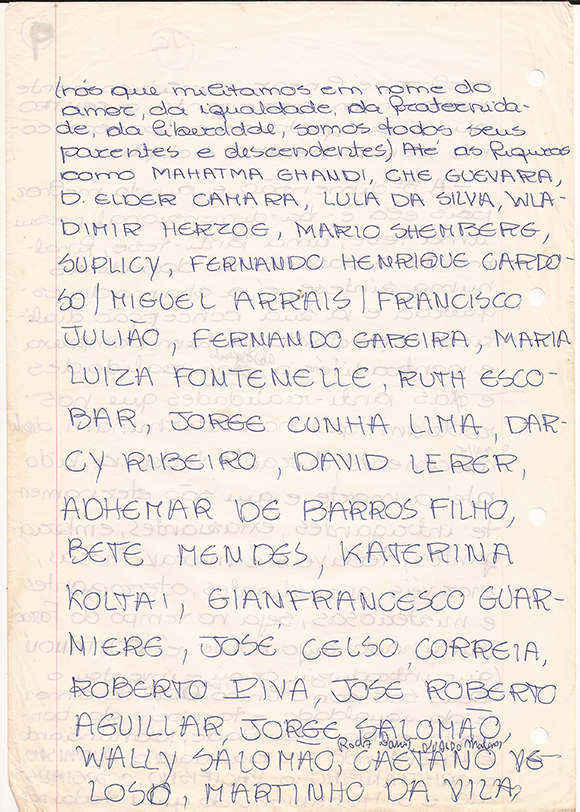 (nós que militamos em nome do
amor, da igualdade, da fraternida-
de, da liberdade, somos todos seus
parentes e descendentes) Até as figuras
como MAHATMA GHANDI, CHE GUEVARA,
D. ELDER CAMARA, LULA DA SILVA, WLA-
DIMIR HERZOG, MARIO SHEMBERG,
SUPLICY, FERNANDO HENRIQUE CARDO-
SO/MIGUEL ARRAIS/FRANCISCO
JULIÃO, FERNANDO GABEIRA, MARIA
LUIZA FONTENELLE, RUTH ESCO-
BAR, JORGE CUNHA LIMA, DAR-
CY RIBEIRO, DAVID LERER,
ADHEMAR DE BARROS FILHO,
BETE MENDES, KATERINA
KOLTAI, GIANFRANCESCO GUAR-
NIERE, JOSÉ CELSO CORREIA,
ROBERTO PIVA, JOSÉ ROBERTO
AGUILLAR, JORGE SALOMÃO,
WALLY SALOMÃO, CAETANO VE-
LOSO, MARTINHO DA VILA,